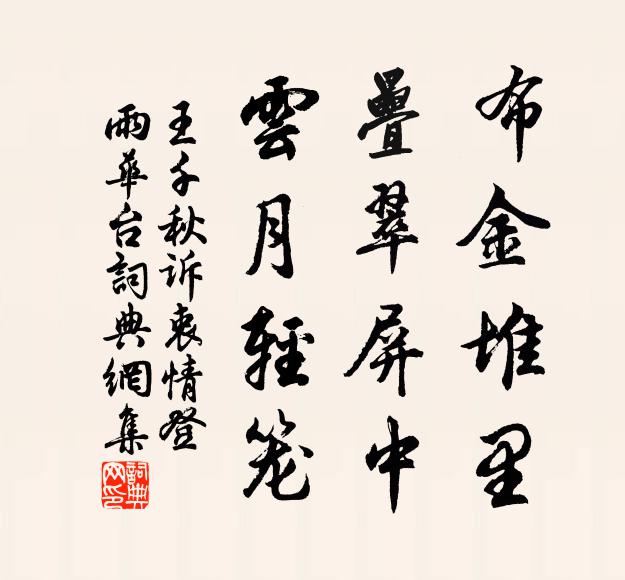 布金堆里
疊翠屏中
雲月輕笼
王千秋訴衷情登
雨華台詞典網集
詞典
网印